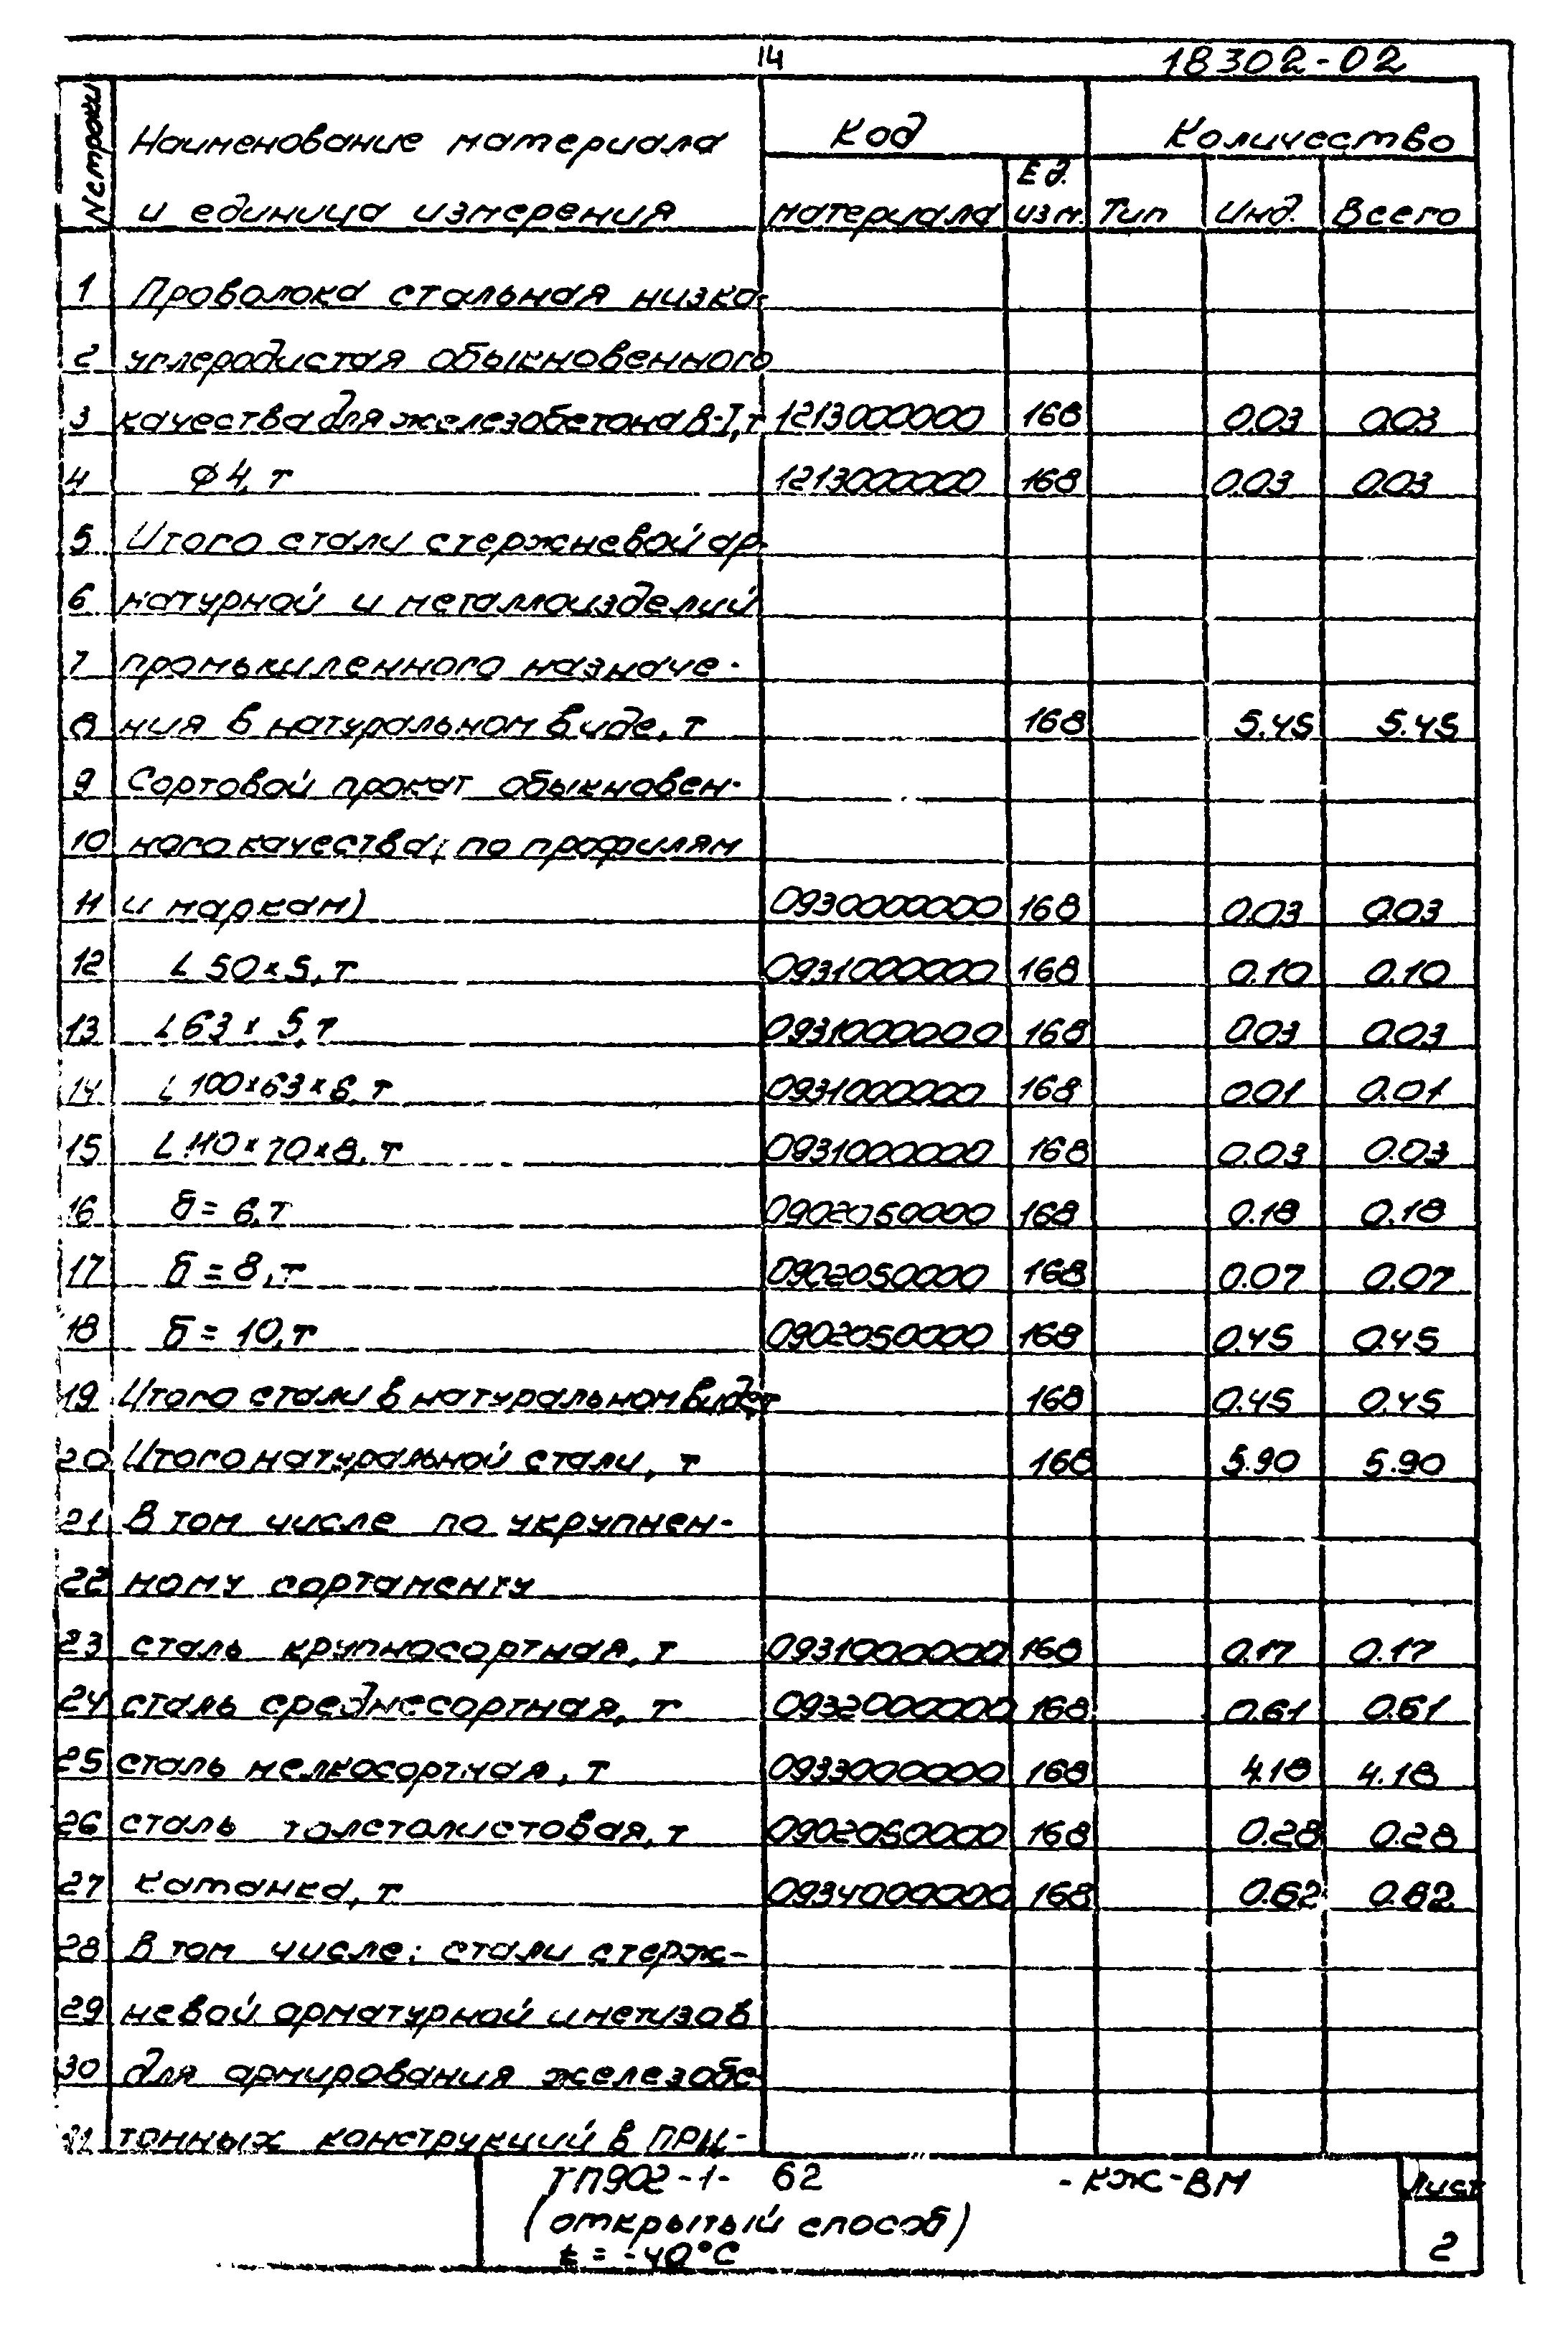 14
18302-02
N строки Наименование материала Код Количество
и единица измерения материала Ед. изм. Тип Инд. Всего
1 Проволока стальная низко-
2 углеродистая обыкновенного
3 качества для железобетона В-I, т 1213000000 168 0.03 0.03
4 ø 4, т 1213000000 168 0.03 0.03
5 Итого стали стержневой ар-
6 матурной и металлоизделий
7 промышленного назначе-
8 ния в натуральном виде, т 168 5.45 5.45
9 Сортовой прокат обыкновен-
10 ного качества; по профилям
11 и маркам) 0930000000 168 0.03 0.03
12 L 50×5, т 0931000000 168 0.10 0.10
13 L 63 × 5, т 0931000000 168 0.03 0.03
14 L 100×63×6, т 0931000000 168 0.01 0.01
15 L 110×70×8, т 0931000000 168 0.03 0.03
16 δ = 6, т 0902050000 168 0.18 0.18
17 δ = 8, т 0902050000 168 0.07 0.07
18 δ = 10, т 0902050000 168 0.45 0.45
19 Итого стали в натуральном виде, т 168 0.45 0.45
20 Итого натуральной стали, т 168 5.90 5.90
21 В том числе по укрупнен-
22 ному сортаменту
23 сталь крупносортная, т 0931000000 168 0.17 0.17
24 сталь среднесортная, т 0932000000 168 0.61 0.61
25 сталь мелкосортная, т 0933000000 168 4.18 4.18
26 сталь толстолистовая, т 0902050000 168 0.28 0.28
27 Катанка, т 0934000000 168 0.62 0.62
28 В том числе: стали стерж-
29 невой арматурной и метизов
30 для армирования железобе-
31 тонных конструкций в при-
ТП902-1- 62 -КЖ-ВМ Лист
(открытый способ)
t = -40°С 2